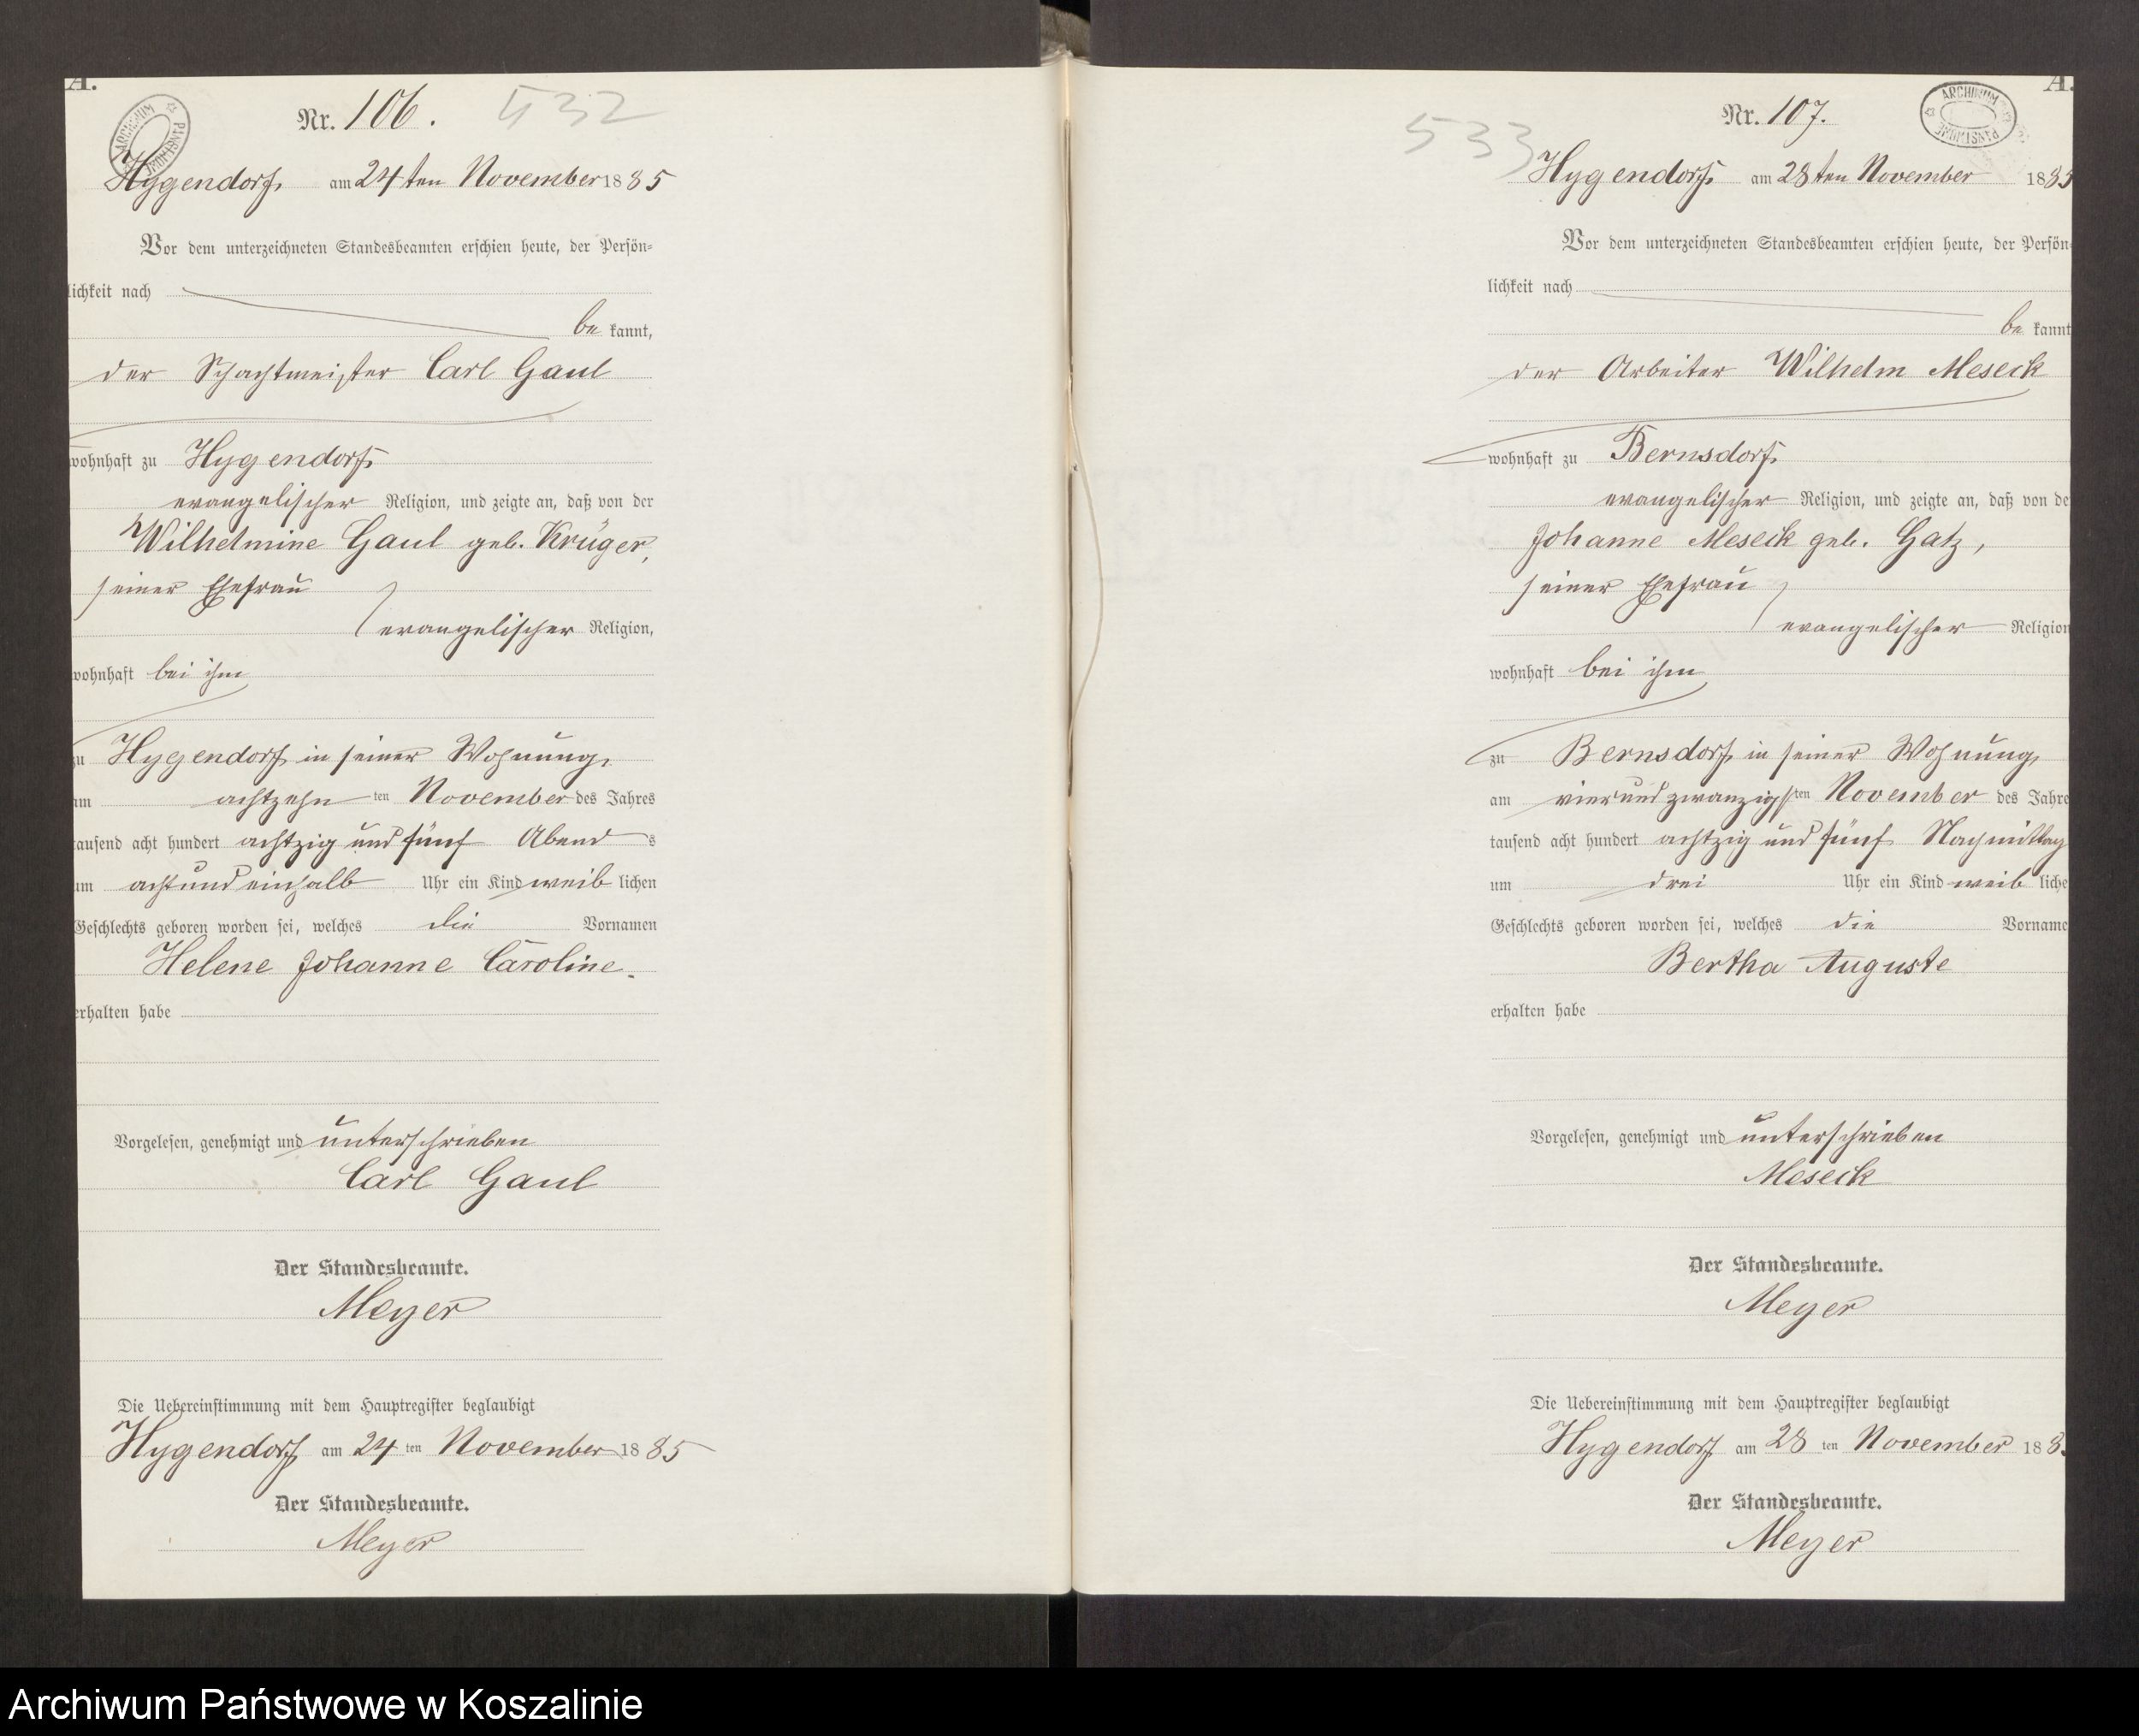 A.
ARCHIWUM PAŃSTWOWE
Nr. 106. 532
Hygendorf, am 24ten November 1885
Vor dem unterzeichneten Standesbeamten erschien heute, der Persön-
lichkeit nach
be kannt,
der Schachtmeister Carl Gaul
wohnhaft zu Hygendorf,
evangelischer Religion, und zeigte an, daß von der
Wilhelmine Gaul geb. Krüger,
seiner Ehefrau
evangelischer Religion,
wohnhaft bei ihm
zu Hygendorf, in seiner Wohnung,
am achtzehn ten November des Jahres
tausend acht hundert achtzig und fünf Abend s
um acht und einhalb Uhr ein Kind weib lichen
Geschlechts geboren worden sei, welches die Vornamen
Helene Johanne Caroline.
erhalten habe
Vorgelesen, genehmigt und unterschrieben
Carl Gaul
Der Standesbeamte.
Meyer
Die Uebereinstimmung mit dem Hauptregister beglaubigt
Hygendorf am 24 ten November 18 85
Der Standesbeamte.
Meyer
A.
ARCHIWUM PAŃSTWOWE
533 Nr. 107.
Hygendorf, am 28ten November 1885
Vor dem unterzeichneten Standesbeamten erschien heute, der Persön
lichkeit nach
be kannt
der Arbeiter Wilhelm Meseck
wohnhaft zu Bernsdorf,
evangelischer Religion, und zeigte an, daß von de
Johanne Meseck geb. Gatz,
seiner Ehefrau
evangelischer Religion
wohnhaft bei ihm
zu Bernsdorf, in seiner Wohnung,
am vierundzwanzigs ten November des Jahre
tausend acht hundert achtzig und fünf Nachmittag
um drei Uhr ein Kind weib liche
Geschlechts geboren worden sei, welches die Vorname
Bertha Auguste
erhalten habe
Vorgelesen, genehmigt und unterschrieben
Meseck
Der Standesbeamte.
Meyer
Die Uebereinstimmung mit dem Hauptregister beglaubigt
Hygendorf am 28 ten November 18 8
Der Standesbeamte.
Meyer
Archiwum Państwowe w Koszalinie